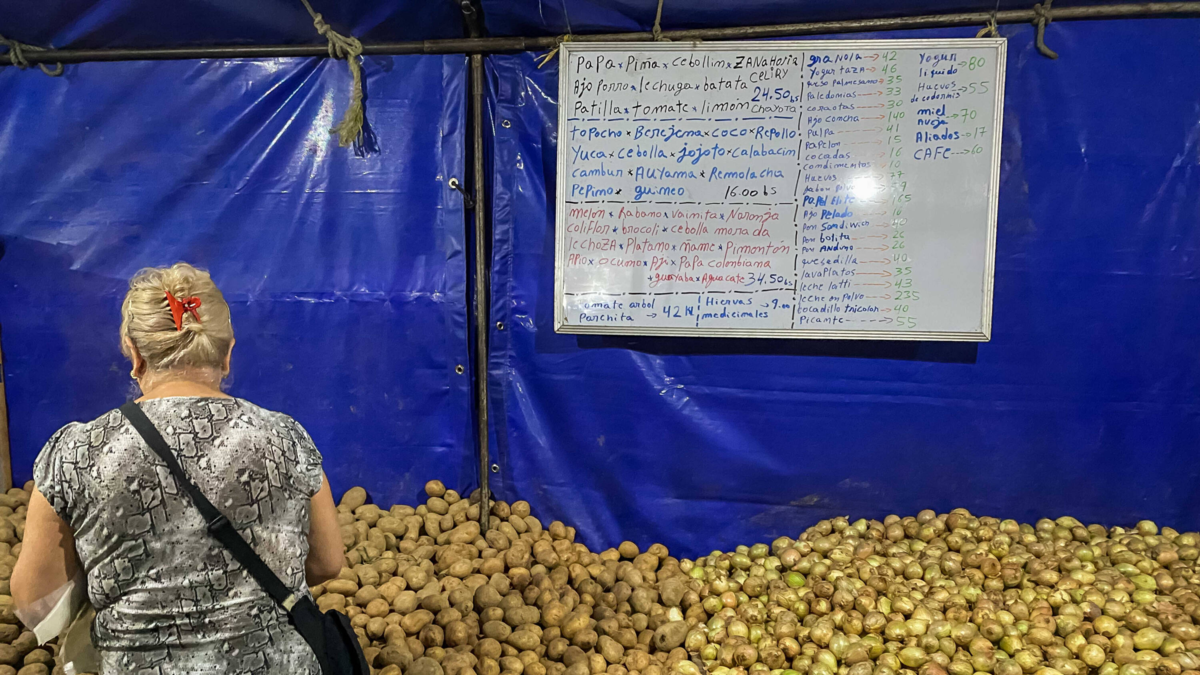 Papa x Piña x cebollin x ZANAHORIA
CELIRY
Ajo Porro x lechuga x batata 24.50 bs
Patilla x tomate x limón chayota
topocho x Berejena x coco x Repollo
Yuca x cebolla x jojoto x calabacin
cambur x AUyama x Remolacha
Pepino x guineo 16.00 bs
melon x Rabano x vainita x Naranja
coliflor x brocoli x cebolla morada
lechoZA x Platano x ñame x Pimontón
APio x ocumo x Aji x PaPa colombiana
+ guayaba x Aguacate 34.50 bs
tomate arbol
Parchita → 42
Hiervas → 9.00
medicinales
graNola → 42
Yogur taza → 46
Queso palmesano → 35
Paledonias → 33
caraotas → 30
Ajo concha → 140
PulPa → 41
PaPelon → 15
cocadas
condimentos
Huevos
PaPel Elite → 165
Ajo Pelado
Pan Sandiwich
Pan bolita → 26
Pan ANdino → 26
quesadilla → 40
lavaPlatos → 35
leche latti → 43
leche en Polvo → 235
bocadillo tricolor → 40
Picante → 55
Yogur
liquido → 80
Huevos → 55
de codornis
miel → 70
Aliados → 17
CAFE → 60